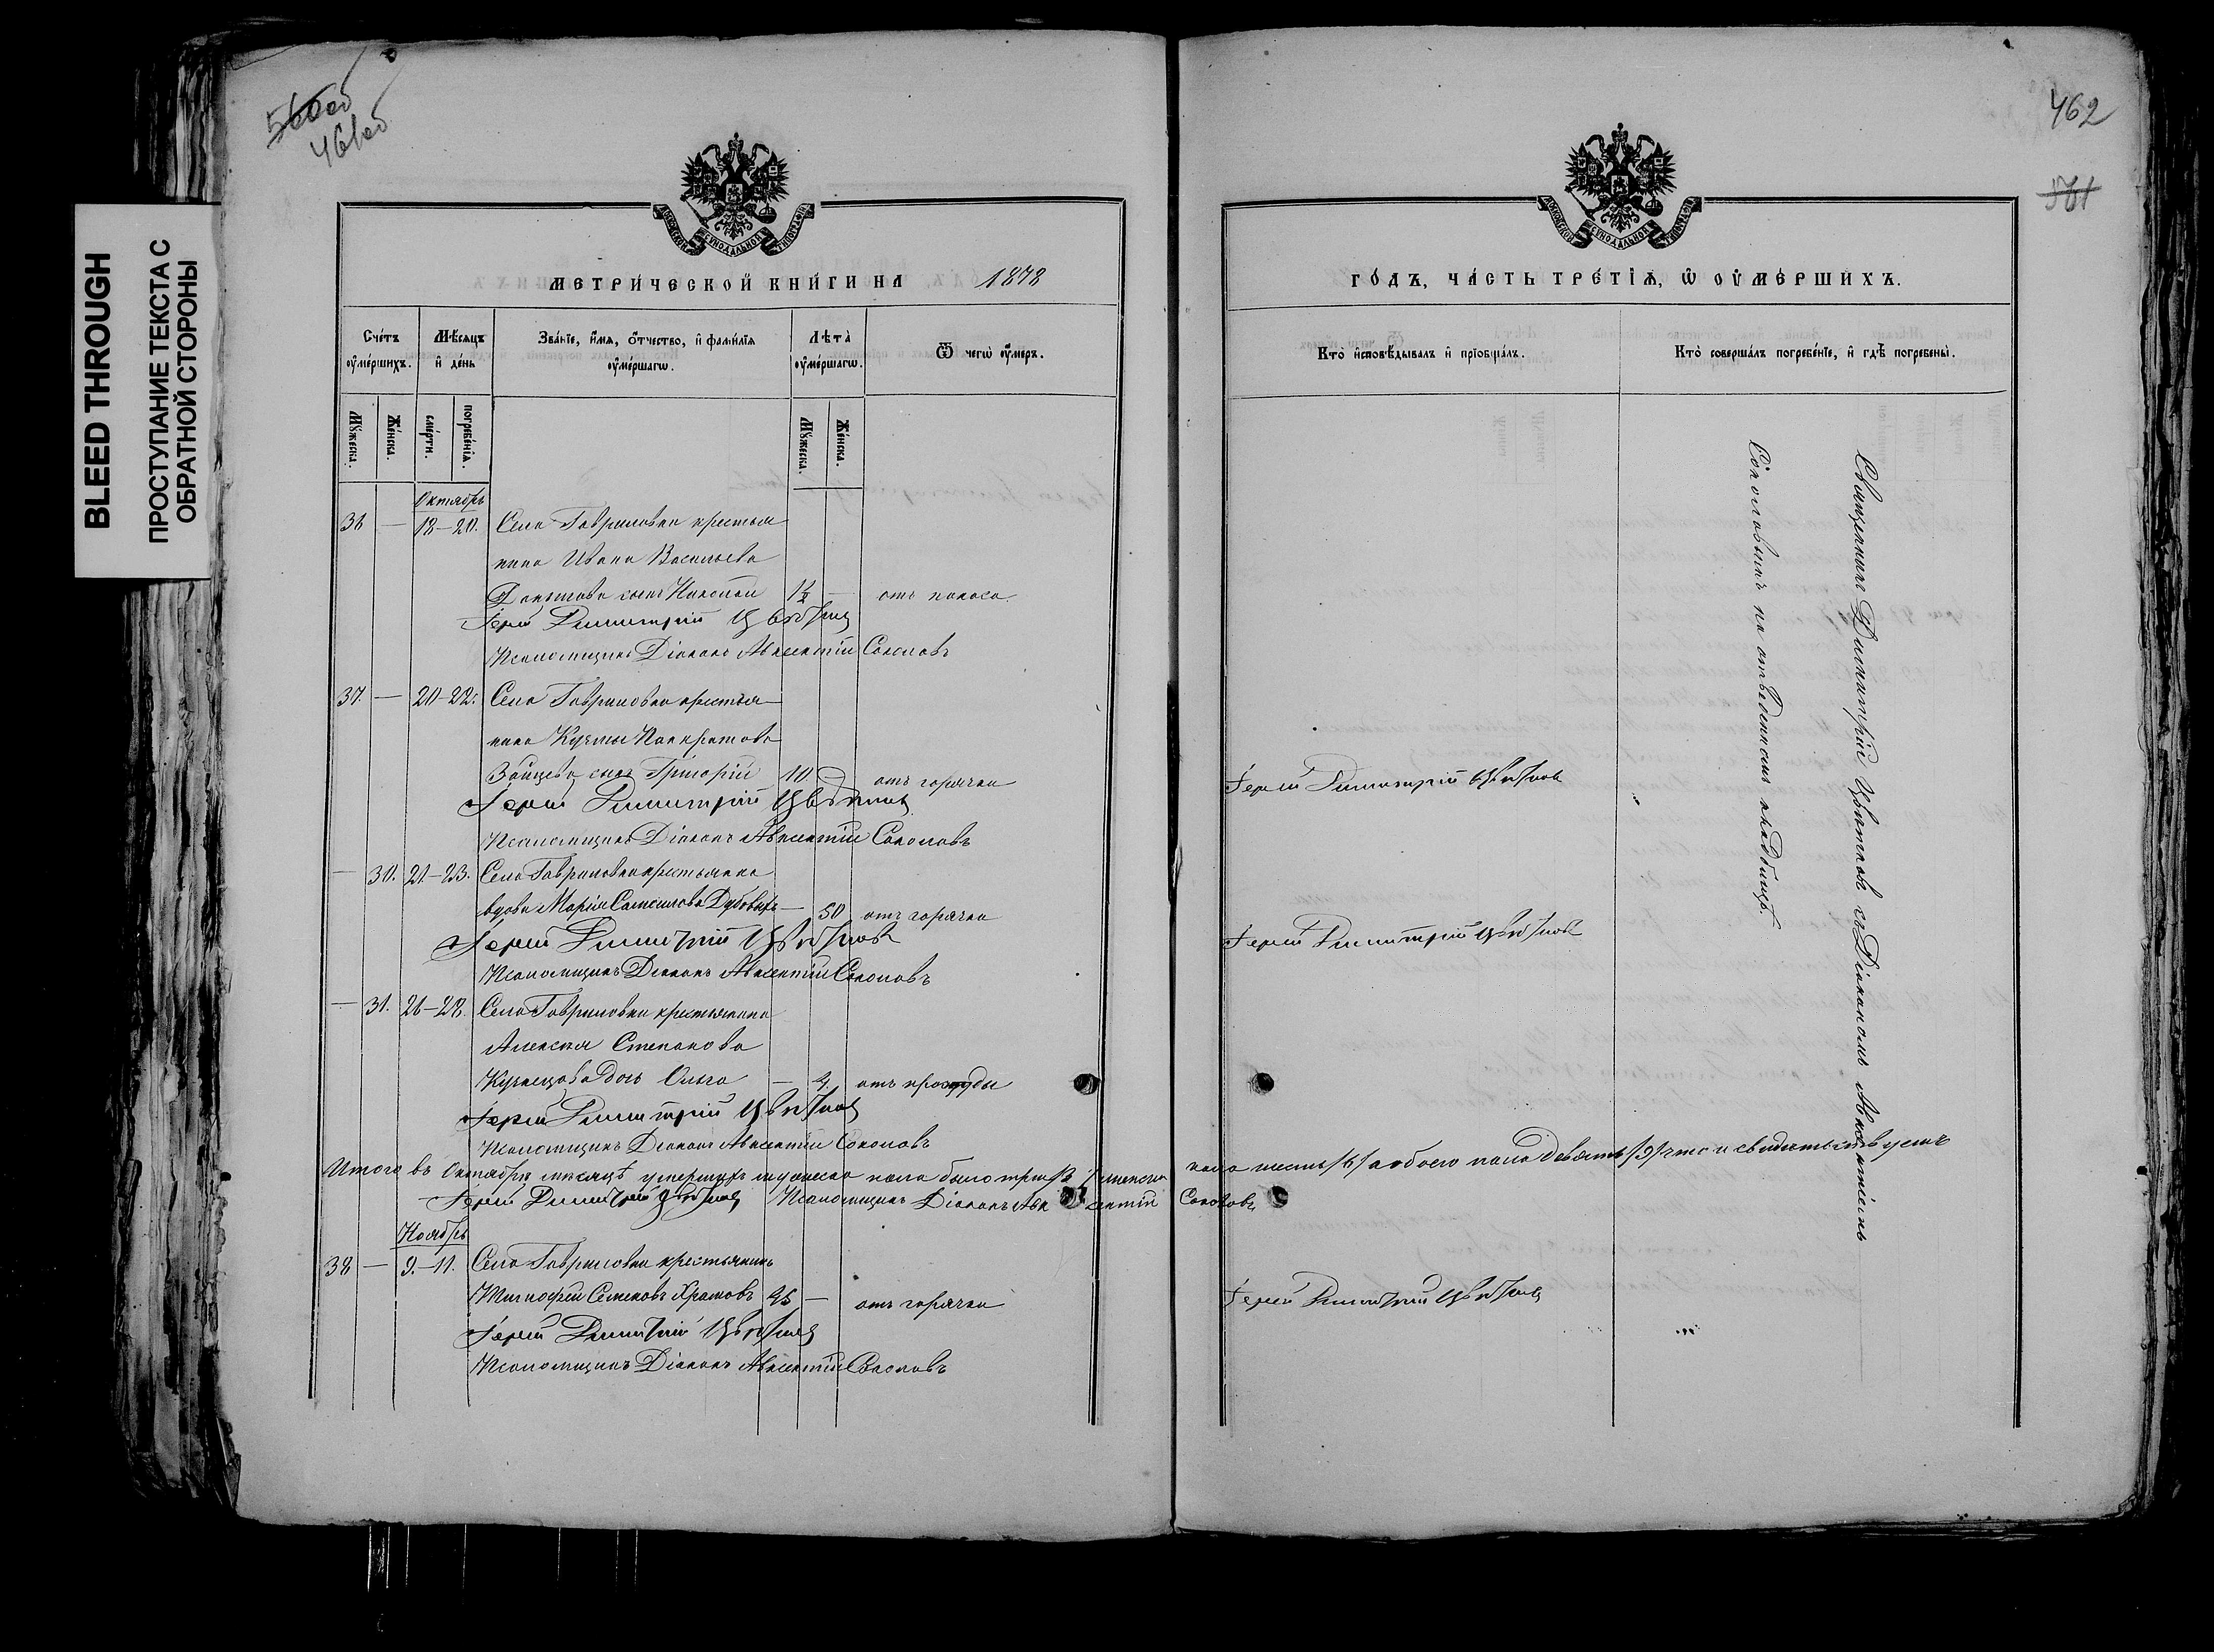 BLEED THROUGH
ПРОСТУПАНИЕ ТЕКСТА С
ОБРАТНОЙ СТОРОНЫ
560об
461об
МОСКОВСКОЙ СѴНОДАЛЬНОЙ ТИПОГРАФІИ
МЕТРИЧЕСКОЙ КНИГИ НА 1878
Счетъ оумершихъ.
Мѣсяцъ и день
Званіе, имя, отчество, и фамилія оумершагѡ.
Лѣта оумершагѡ.
Ѿ чегѡ оумеръ.
Мужеска.
Женска.
смерти.
погребенія.
Мужеска.
Женска.
Октябрь
36 — 18–20. Села Гавриловки крестья
нина Ивана Васильева
сынъ Николай 1½ — отъ поноса
Іерей Димитрій Цвѣтковъ
Псаломщикъ Діаконъ Авксентій Соколовъ
37. — 20–22. Села Гавриловки крестья
нина Кузмы Панкратова
Зайцева сынъ Григорій 10 отъ горячки
Іерей Димитрій Цвѣтковъ
Псаломщикъ Діаконъ Авксентій Соколовъ
— 30. 21–23. Села Гавриловки крестьянка
вдова Марія Самойлова — 50 отъ горячки
Іерей Димитрій Цвѣтковъ
Псаломщикъ Діаконъ Авксентій Соколовъ
— 31. 26–28. Села Гавриловки крестьянина
Алексѣя Степанова
Кузнецова дочь Ольга — 4. отъ простуды
Іерей Димитрій Цвѣтковъ
Псаломщикъ Діаконъ Авксентій Соколовъ
Итого въ Октябрѣ мѣсяцѣ умершихъ мужеска пола было три /3/ женска пола шесть /6/ а обоего пола девять /9/ что и свидетельствуемъ
Іерей Димитрій Цвѣтковъ Псаломщикъ Діаконъ Авксентій Соколовъ
Ноябрь
38 — 9.–11. Села Гавриловки крестьянинъ
Семеновъ Храмовъ 45 — отъ горячки
Іерей Димитрій Цвѣтковъ
Псаломщикъ Діаконъ Авксентій Соколовъ
462
561
МОСКОВСКОЙ СѴНОДАЛЬНОЙ ТИПОГРАФІИ
ГОДЪ, ЧАСТЬ ТРЕТІЯ, Ѡ ОУМЕРШИХЪ.
Кто исповѣдывалъ и пріобщалъ.
Кто совершалъ погребеніе, и гдѣ погребены.
Іерей Димитрій Цвѣтковъ
Іерей Димитрій Цвѣтковъ
Іерей Димитрій Цвѣтковъ
Священникъ Димитрій Цвѣтковъ съ Діакономъ Авксентіемъ
Соколовымъ на отведенномъ кладбищѣ.